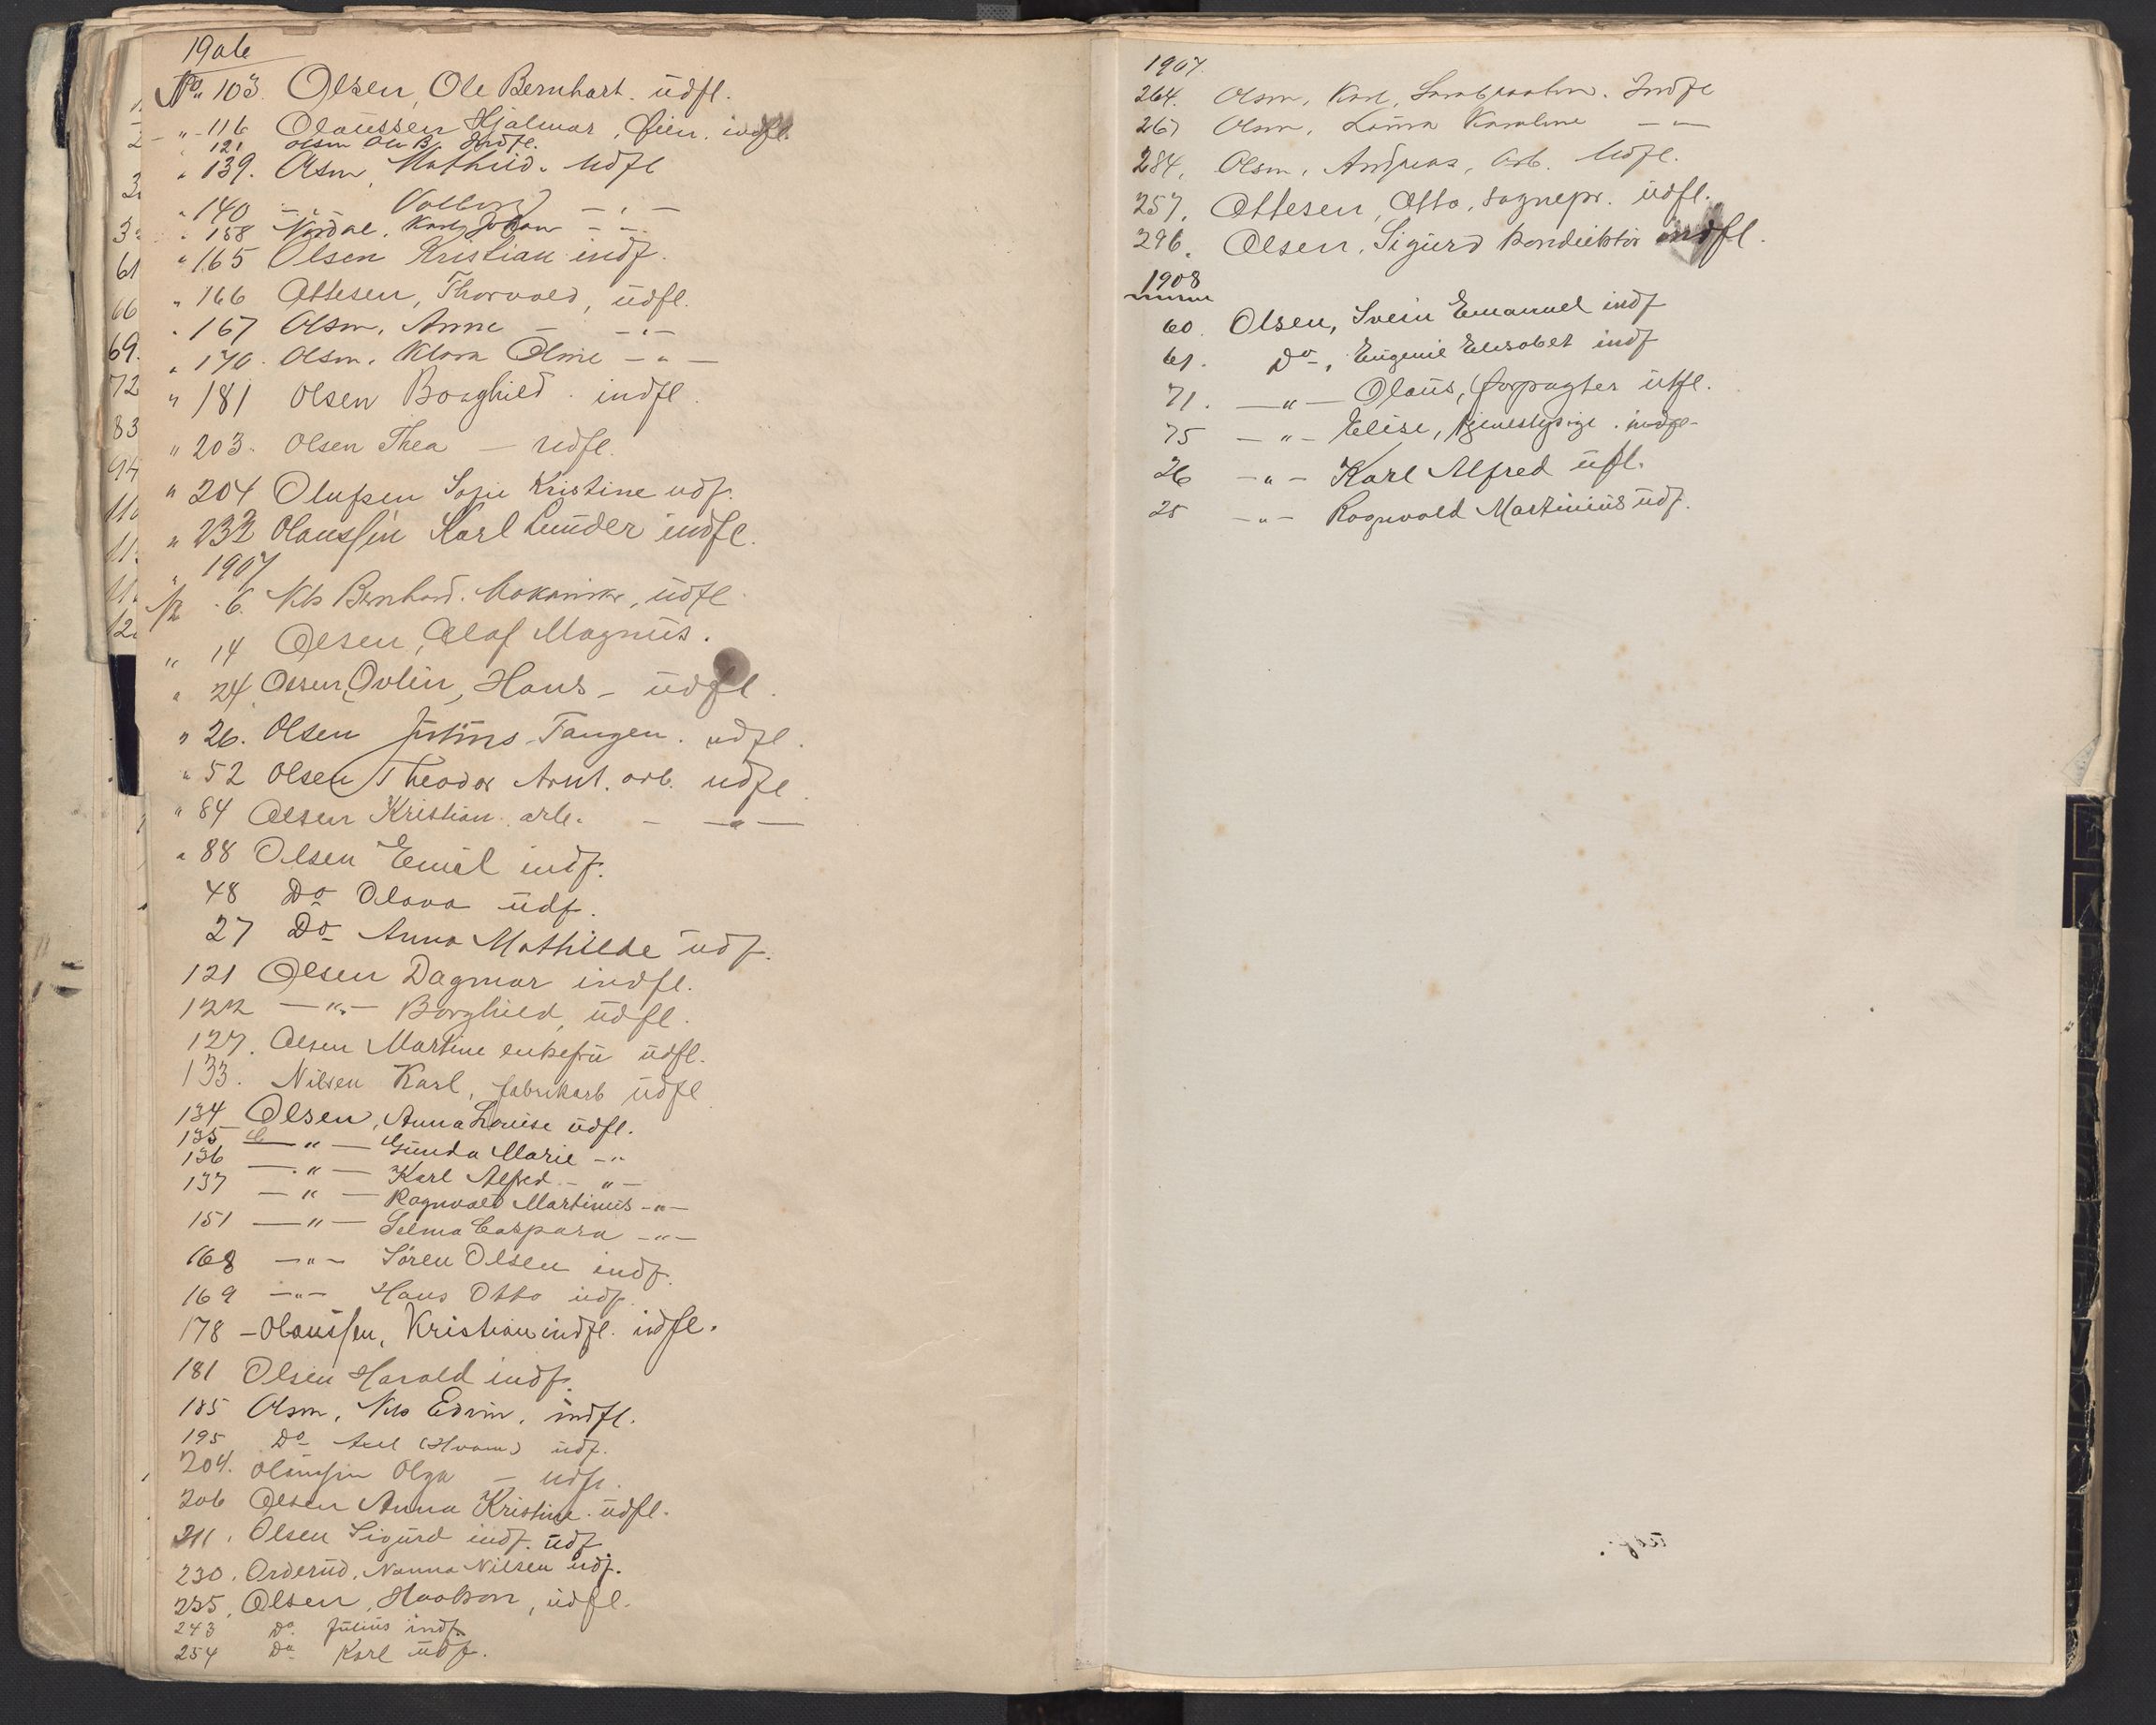 1906
No. 103. Olsen, Ole Bernhart. üdfl.
" 116 Olaüssen Hjalmar, indfl.
" 121 Olsen Ole B. Indfl.
" 139. Olsen, Mathild. Udfl
" 140 - " - Valborg - " -
" 158 Nordal, Karl Johan - " -
" 165 Olsen Kristian indf.
" 166 Ottesen, Thorvald, üdfl.
" 167 Olsen, Anne - - " -
" 170. Olsen, Klara Oline - " -
" 181 Olsen Borghild. indfl.
" 203. Olsen Thea — Udfl.
" 204 Olufsen Sofie Kristine udf.
" 232 Olaussen Karl Lunder indfl.
" 1907
No. 6. Nls Bernhard. Mekaniker, üdfl
" 14 Olsen, Olaf Magnüs.
" 24. Olsen, Ovlin, Hans - üdfl.
" 26. Olsen Julius Tangen. udfl.
" 52 Olsen Theodor Arnt. arb. udfl.
" 84 Olsen Kristian. arb. - — " —
" 88 Olsen Emil indf.
48 Do Olava üdf.
27 Do Anna Mathilde üdf.
121 Olsen Dagmar indfl.
122 — " — Borghild, üdfl.
127. Olsen Martine enkefrü üdfl.
133. Nilsen Karl, fabrikarb üdfl
134 Olsen, Anna Lovise üdfl.
135 — " — Günda Marie - "
136 — " — Karl Alfred - " -
137 — " — Ragnvald Martinüs - " -
151 — " — Selma Caspara - " -
168 - " - Sören Olsen indf.
169 - " - Hans Otto üdf.
178 - Olaüssen, Kristian indfl. indfl.
181 Olsen Harald indf.
185 Olsen, Nls Edvin, indfl.
195 Do Axel (Hvam) üdf.
204. Olaussen Olga — udfl.
206 Olsen Anna Kristine. üdfl.
211. Olsen Sigürd indf. üdf.
230. Orderüd, Nanna Nilsen üdf.
235. Olsen, Haakon, üdfl.
243 Do. Jülius indf.
254 Do Karl üdf.
1907.
264. Olsen, Karl, Indfl
267 Olsen, Laüra Karoline - " -
284. Olsen, Andreas, Arb. Udfl.
257. Ottesen, Otto, sognepr. üdfl.
296. Olsen, Sigürd kondüktör indfl.
1908
60. Olsen, Svein Emanuel indf
61. Do, Eügenie Elisabet indf
71. — " — Olaüs, forpagter üdfl.
75 - " - Elise, tjenestepige. indfl.
26 - " - Karl Alfred üfl.
25 - " - Ragnvald Martiniüs üdf.